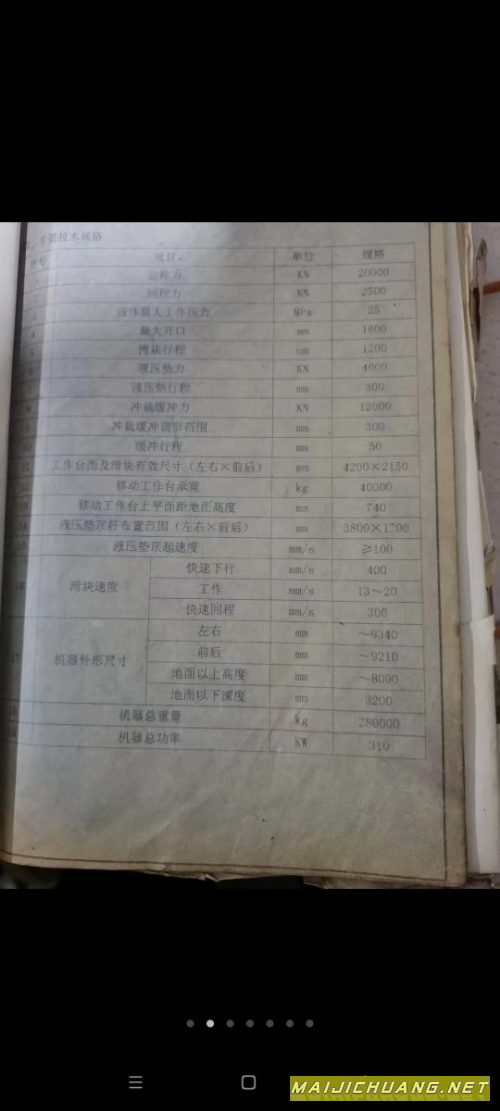 主要技术规格
序号 项目 单位 规格
公称力 KN 20000
回程力 KN 2500
液体最大工作压力 MPa 25
4 最大开口 mm 1600
滑块行程 mm 1200
液压垫力 KN 4000
液压垫行程 mm 300
冲裁缓冲力 KN 12000
冲裁缓冲调节范围 mm 300
10 缓冲行程 mm 50
11 工作台面及滑块有效尺寸（左右×前后） mm 4200×2150
移动工作台承重 kg 40000
移动工作台上平面距地面高度 mm 740
液压垫顶杆布置范围（左右×前后） mm 3800×1700
液压垫顶起速度 mm/s ≥100
滑块速度 快速下行 mm/s 400
工作 mm/s 13～20
快速回程 mm/s 300
机器外形尺寸 左右 mm ～9340
前后 mm ～9210
地面以上高度 mm ～8090
地面以下深度 mm 3200
机器总重量 kg 280000
机器总功率 KW 310
MAIJICHUANG.NET